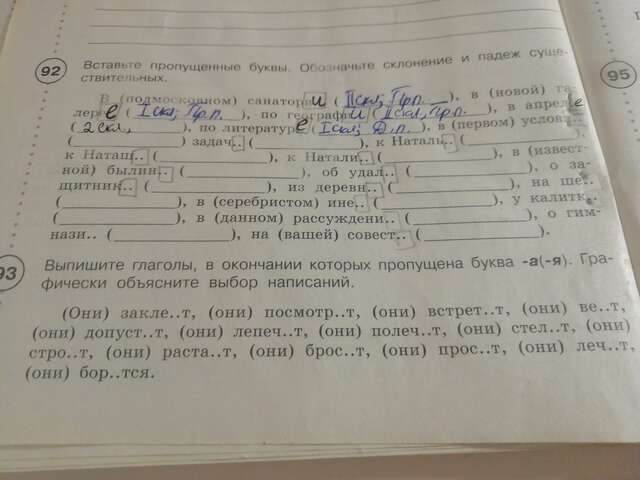 92 Вставьте пропущенные буквы. Обозначьте склонение и падеж суще-
ствительных.
В (подмосковном) санатори и (II скл, Пр.п.), в (новой) га-
лере е (I скл, Пр.п.), по географи и (II скл, Пр.п.), в апрел е
(2 скл,), по литератур е (I скл, Д.п.), в (первом) услови..
(            ) задач.. (            ), к Наталь.. (            ),
к Наташ.. (            ), к Натали.. (            ), в (извест-
ной) былин.. (            ), об удал.. (            ), о за-
щитник.. (            ), из деревн.. (            ), на ше..
(            ), в (серебристом) ине.. (            ), у калитк..
(            ), в (данном) рассуждени.. (            ), о гим-
нази.. (            ), на (вашей) совест.. (            ).
95
93 Выпишите глаголы, в окончании которых пропущена буква -а(-я). Гра-
фически объясните выбор написаний.
(Они) закле..т, (они) посмотр..т, (они) встрет..т, (они) ве..т,
(они) допуст..т, (они) лепеч..т, (они) полеч..т, (они) стел..т, (они)
стро..т, (они) раста..т, (они) брос..т, (они) прос..т, (они) леч..т,
(они) бор..тся.